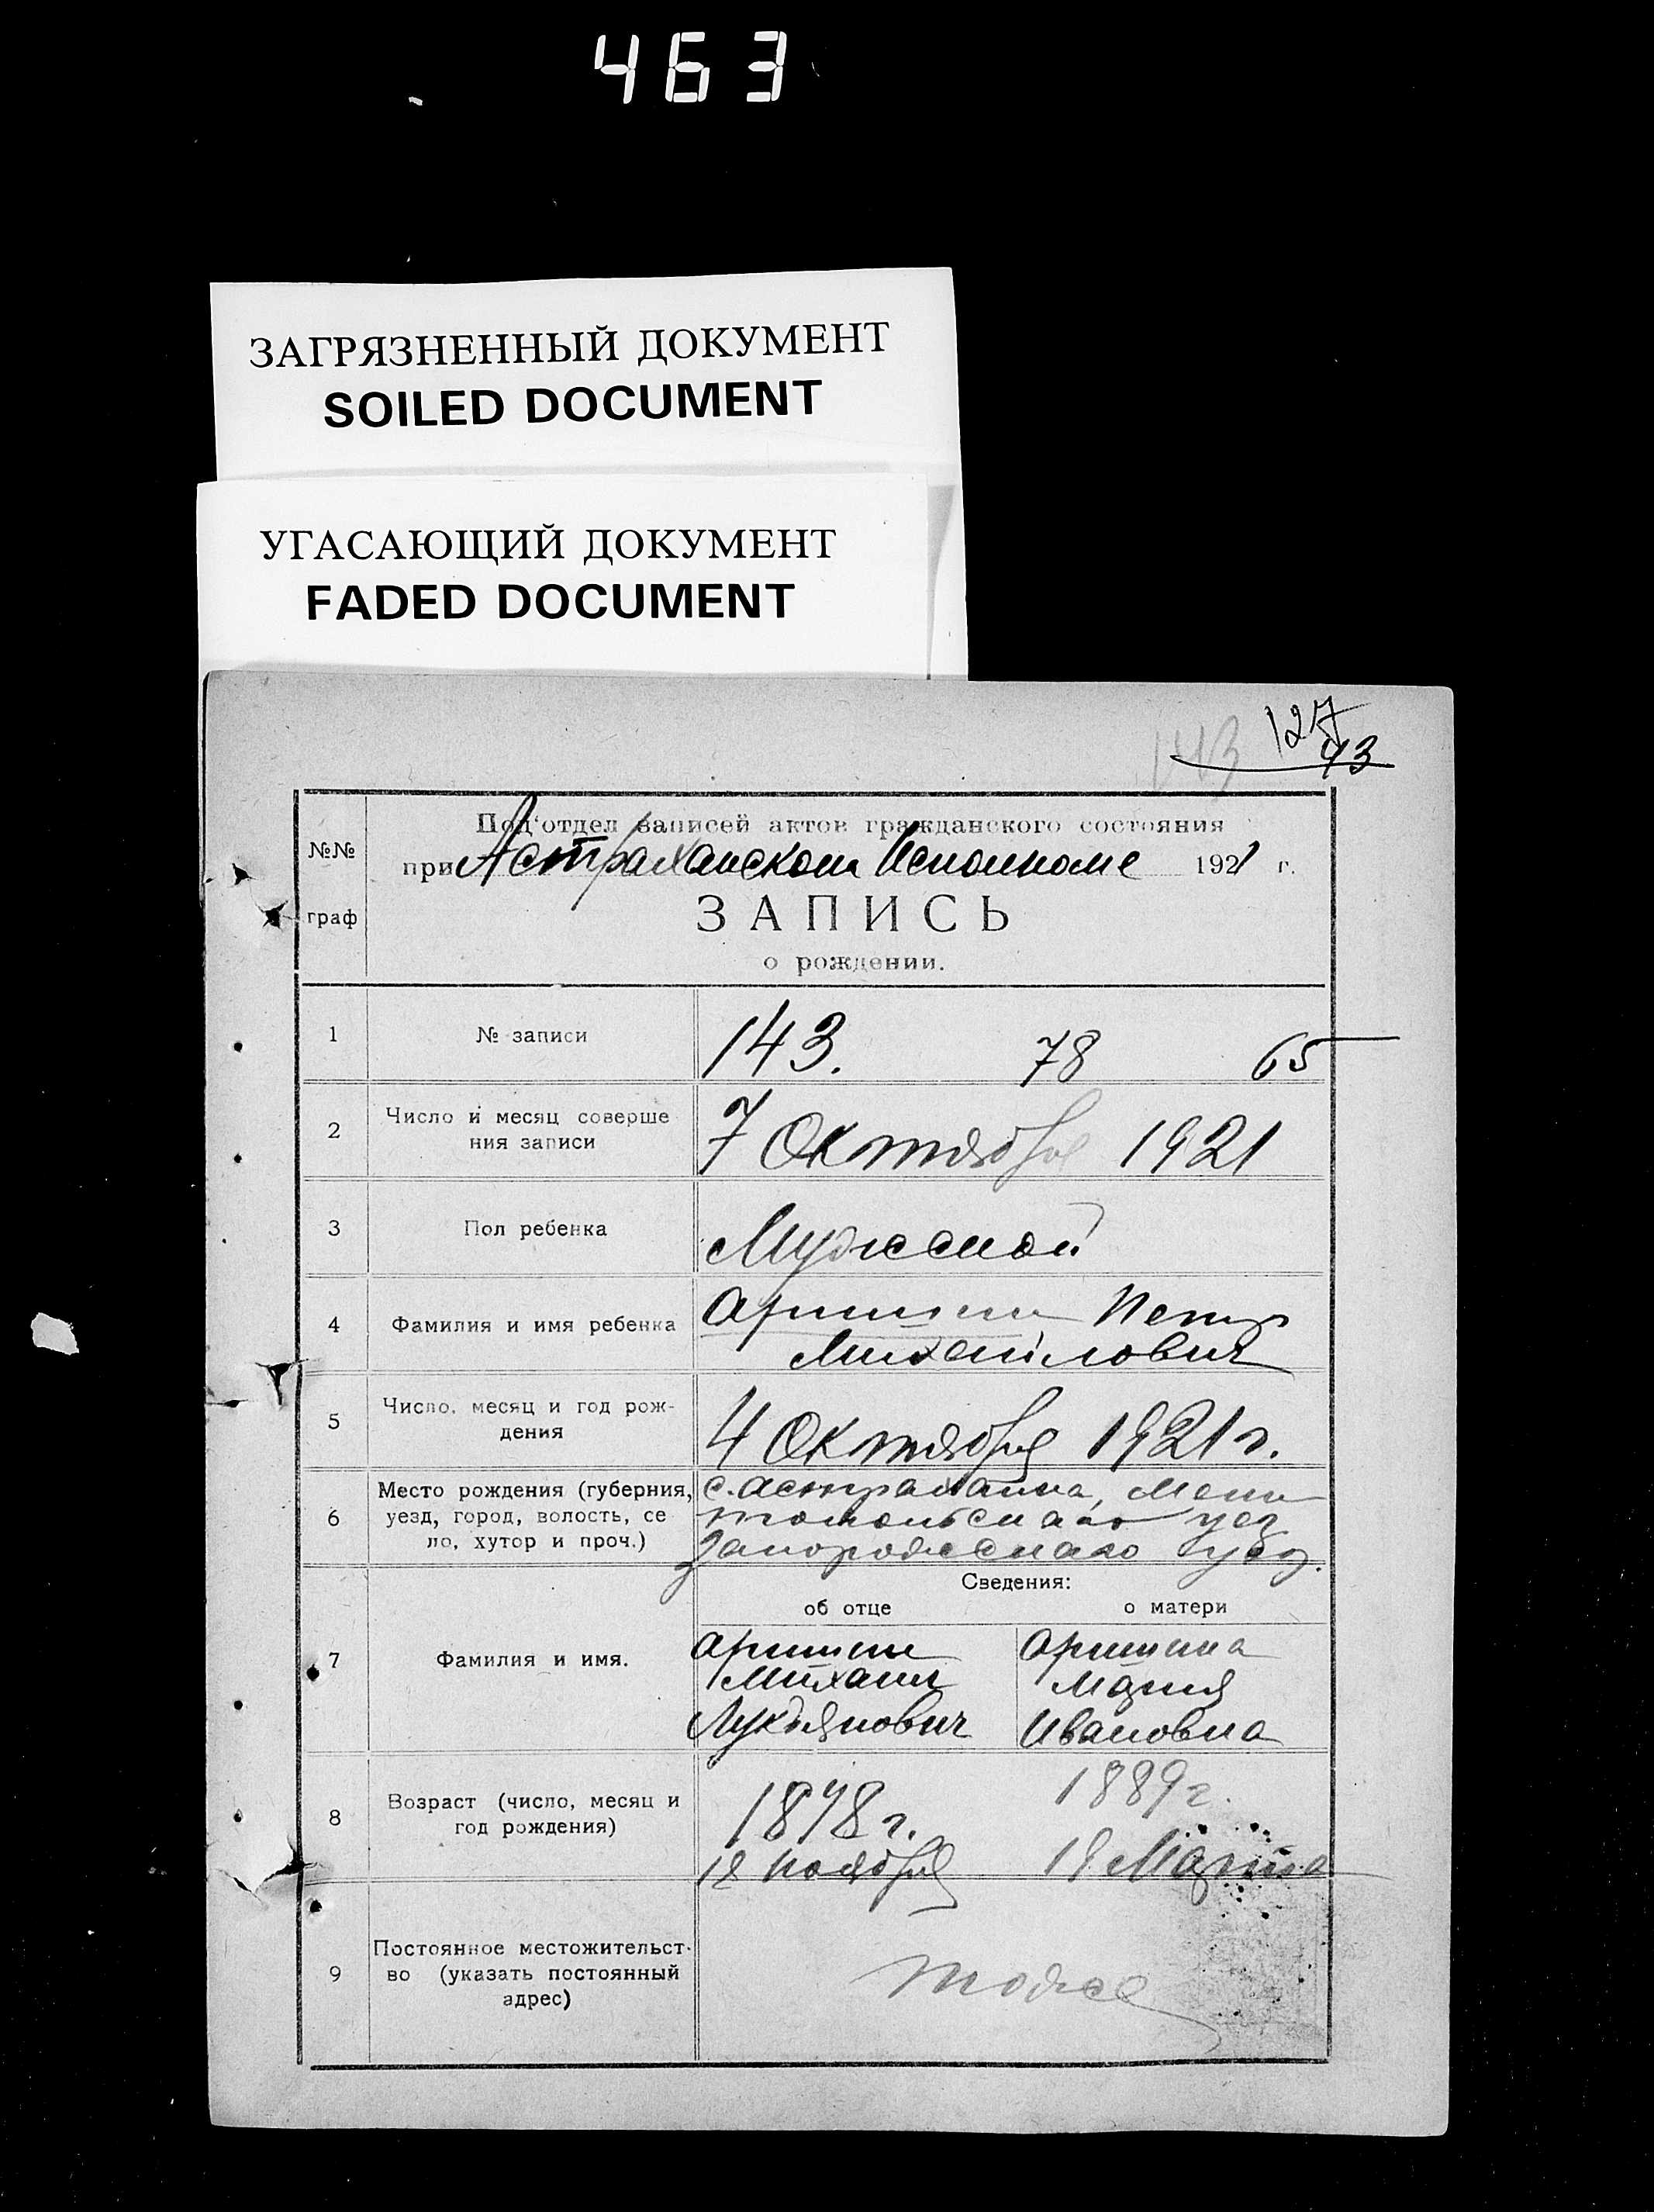 463
ЗАГРЯЗНЕННЫЙ ДОКУМЕНТ
SOILED DOCUMENT
УГАСАЮЩИЙ ДОКУМЕНТ
FADED DOCUMENT
143 127
43
№№ граф
Под'отдел записей актов гражданского состояния
при Астраханском Исполкоме 1921 г.
ЗАПИСЬ
о рождении.
1 № записи 143. 78 65
2 Число и месяц соверше
ния записи
7 Октября 1921
3 Пол ребенка Мужской
4 Фамилия и имя ребенка
Петр
Михайлович
5 Число, месяц и год рож-
дения
4 Октября 1921 г.
6 Место рождения (губерния,
уезд, город, волость, се
ло, хутор и проч.)
с. Астраханка, Мели
топольскаго уез
Запорожскаго губ.
Сведения:
об отце о матери
7 Фамилия и имя.
Михаил Мария
Лукьянович Ивановна
8 Возраст (число, месяц и
год рождения)
18 8 г. 1889 г.
18 ноября 18 Марта
9 Постоянное местожительст-
во (указать постоянный
адрес)
тоже